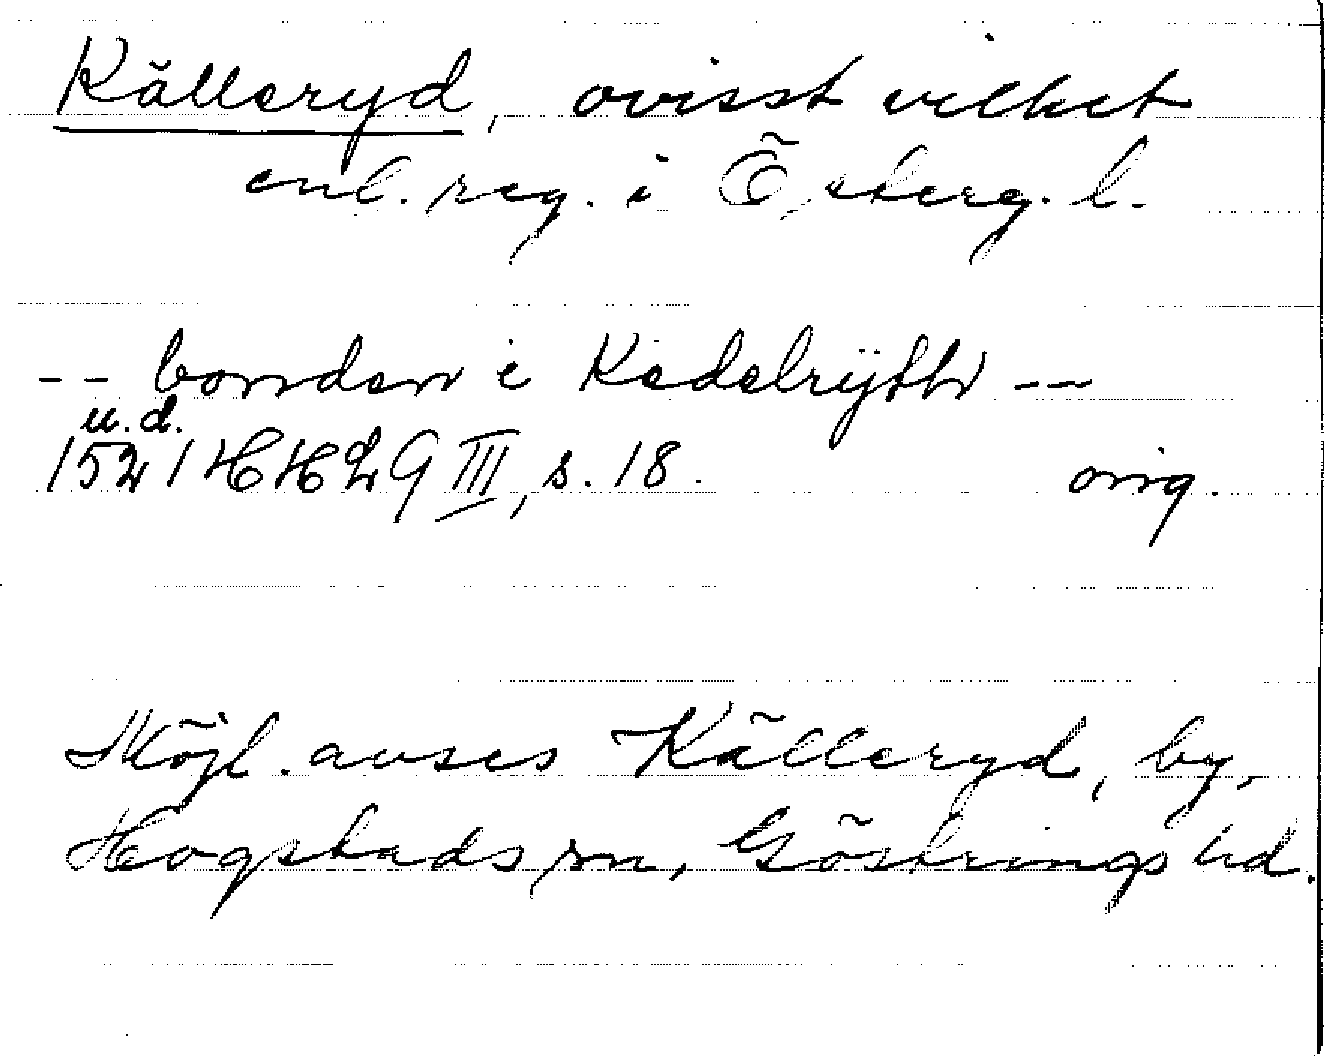 Källeryd, ovisst vilket
enl. reg. i Österg. l.
-- bonden i Kedelrÿth --
u.d.
1521 HH29 III, s. 18. orig.
Möjl. avses Källeryd, by,
Hogstads sn, Göstrings hd.